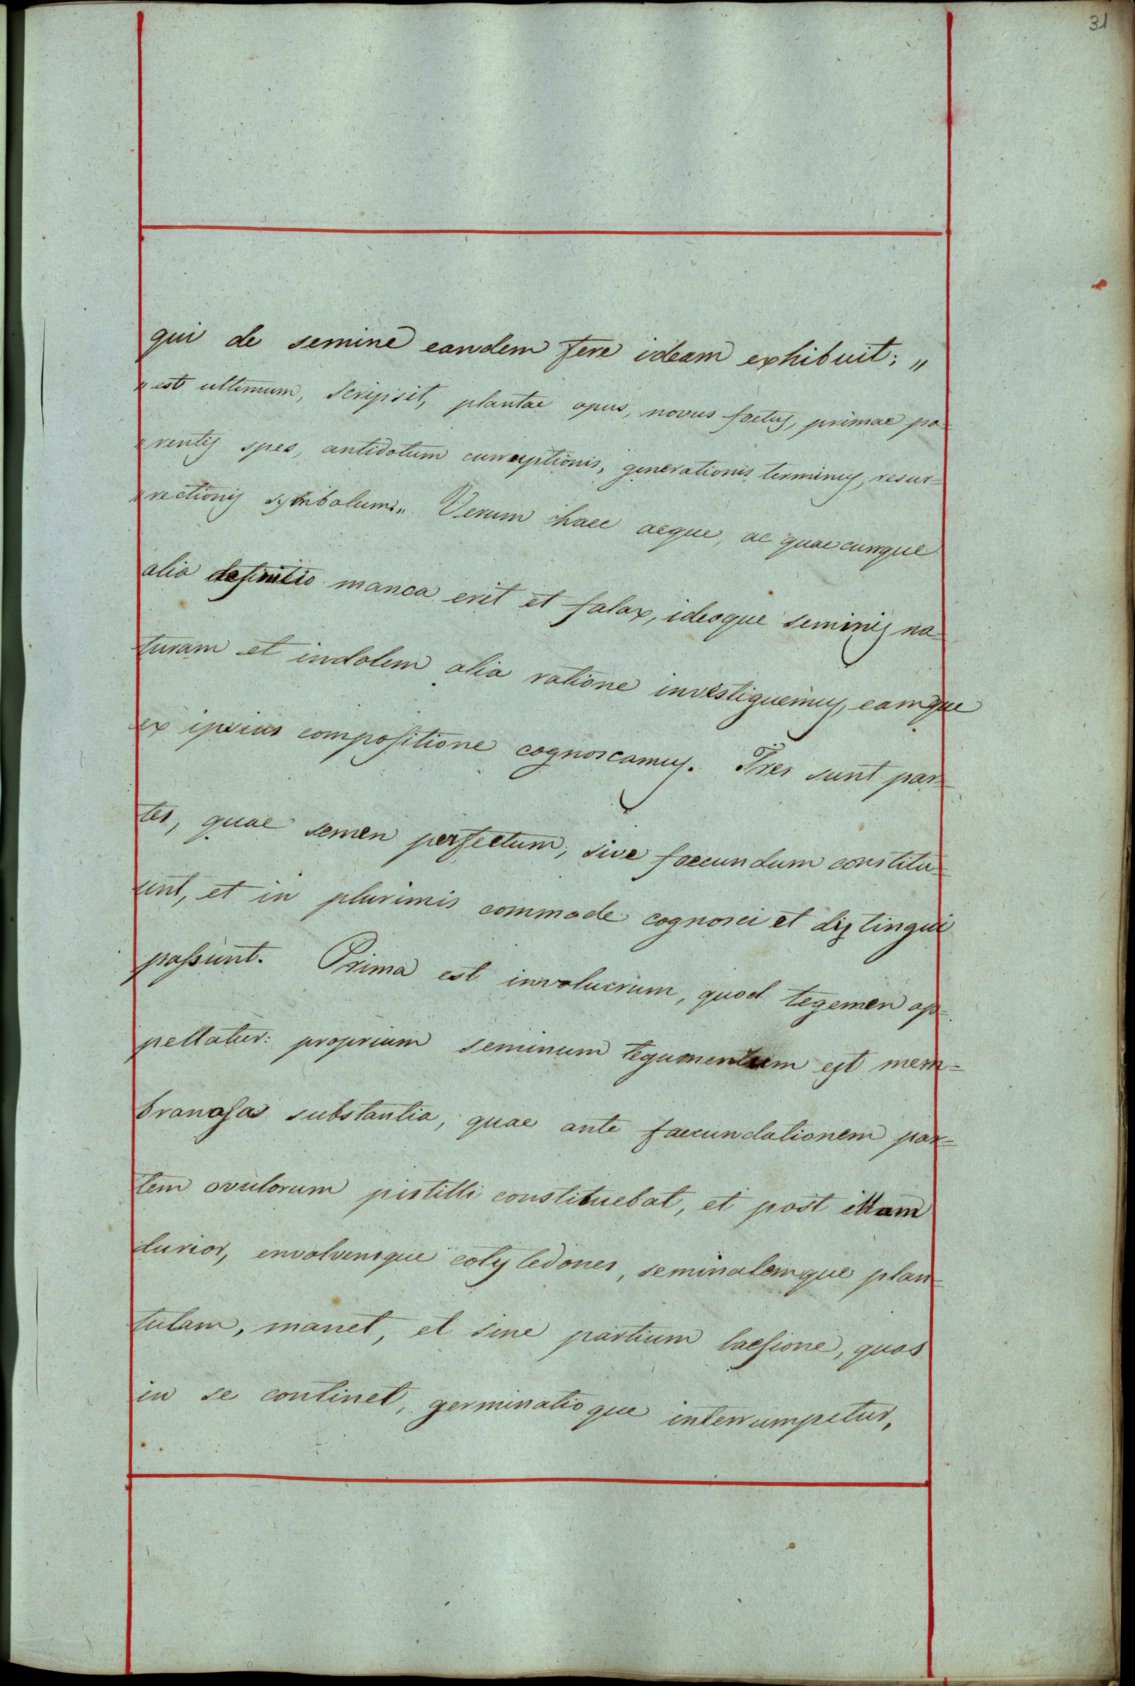 31
qui de semine eandem fere ideam exhibuit; „
„est ultimum, scripsit, plantae opus, novus faetus, primae pa-
„rentis spes, antidotum curruptionis, generationis terminus, resur-
„rectionis symbolum„ Verum haec aeque, ac quaecunque
alia definitio manca erit et falax, ideoque seminis na-
turam et indolem alia ratione investiguemus, eamque
ex ipsius compositione cognoscamus. Tres sunt par-
tes, quae semen perfectum, sive faecundum constitu-
unt, et in plurimis commode cognosci et distingui
possunt. Prima est involucrum, quod tegemen ap-
pellatur: proprium seminum tegumentum est mem-
branosa substantia, quae ante faecundationem par-
tem ovulorum pistilli constituebat, et post illam
durior, envolvensque cotyledones, seminalemque plan-
tulam, manet, et sine partium laesione, quas
in se continet, germinatioque interrumpetur,